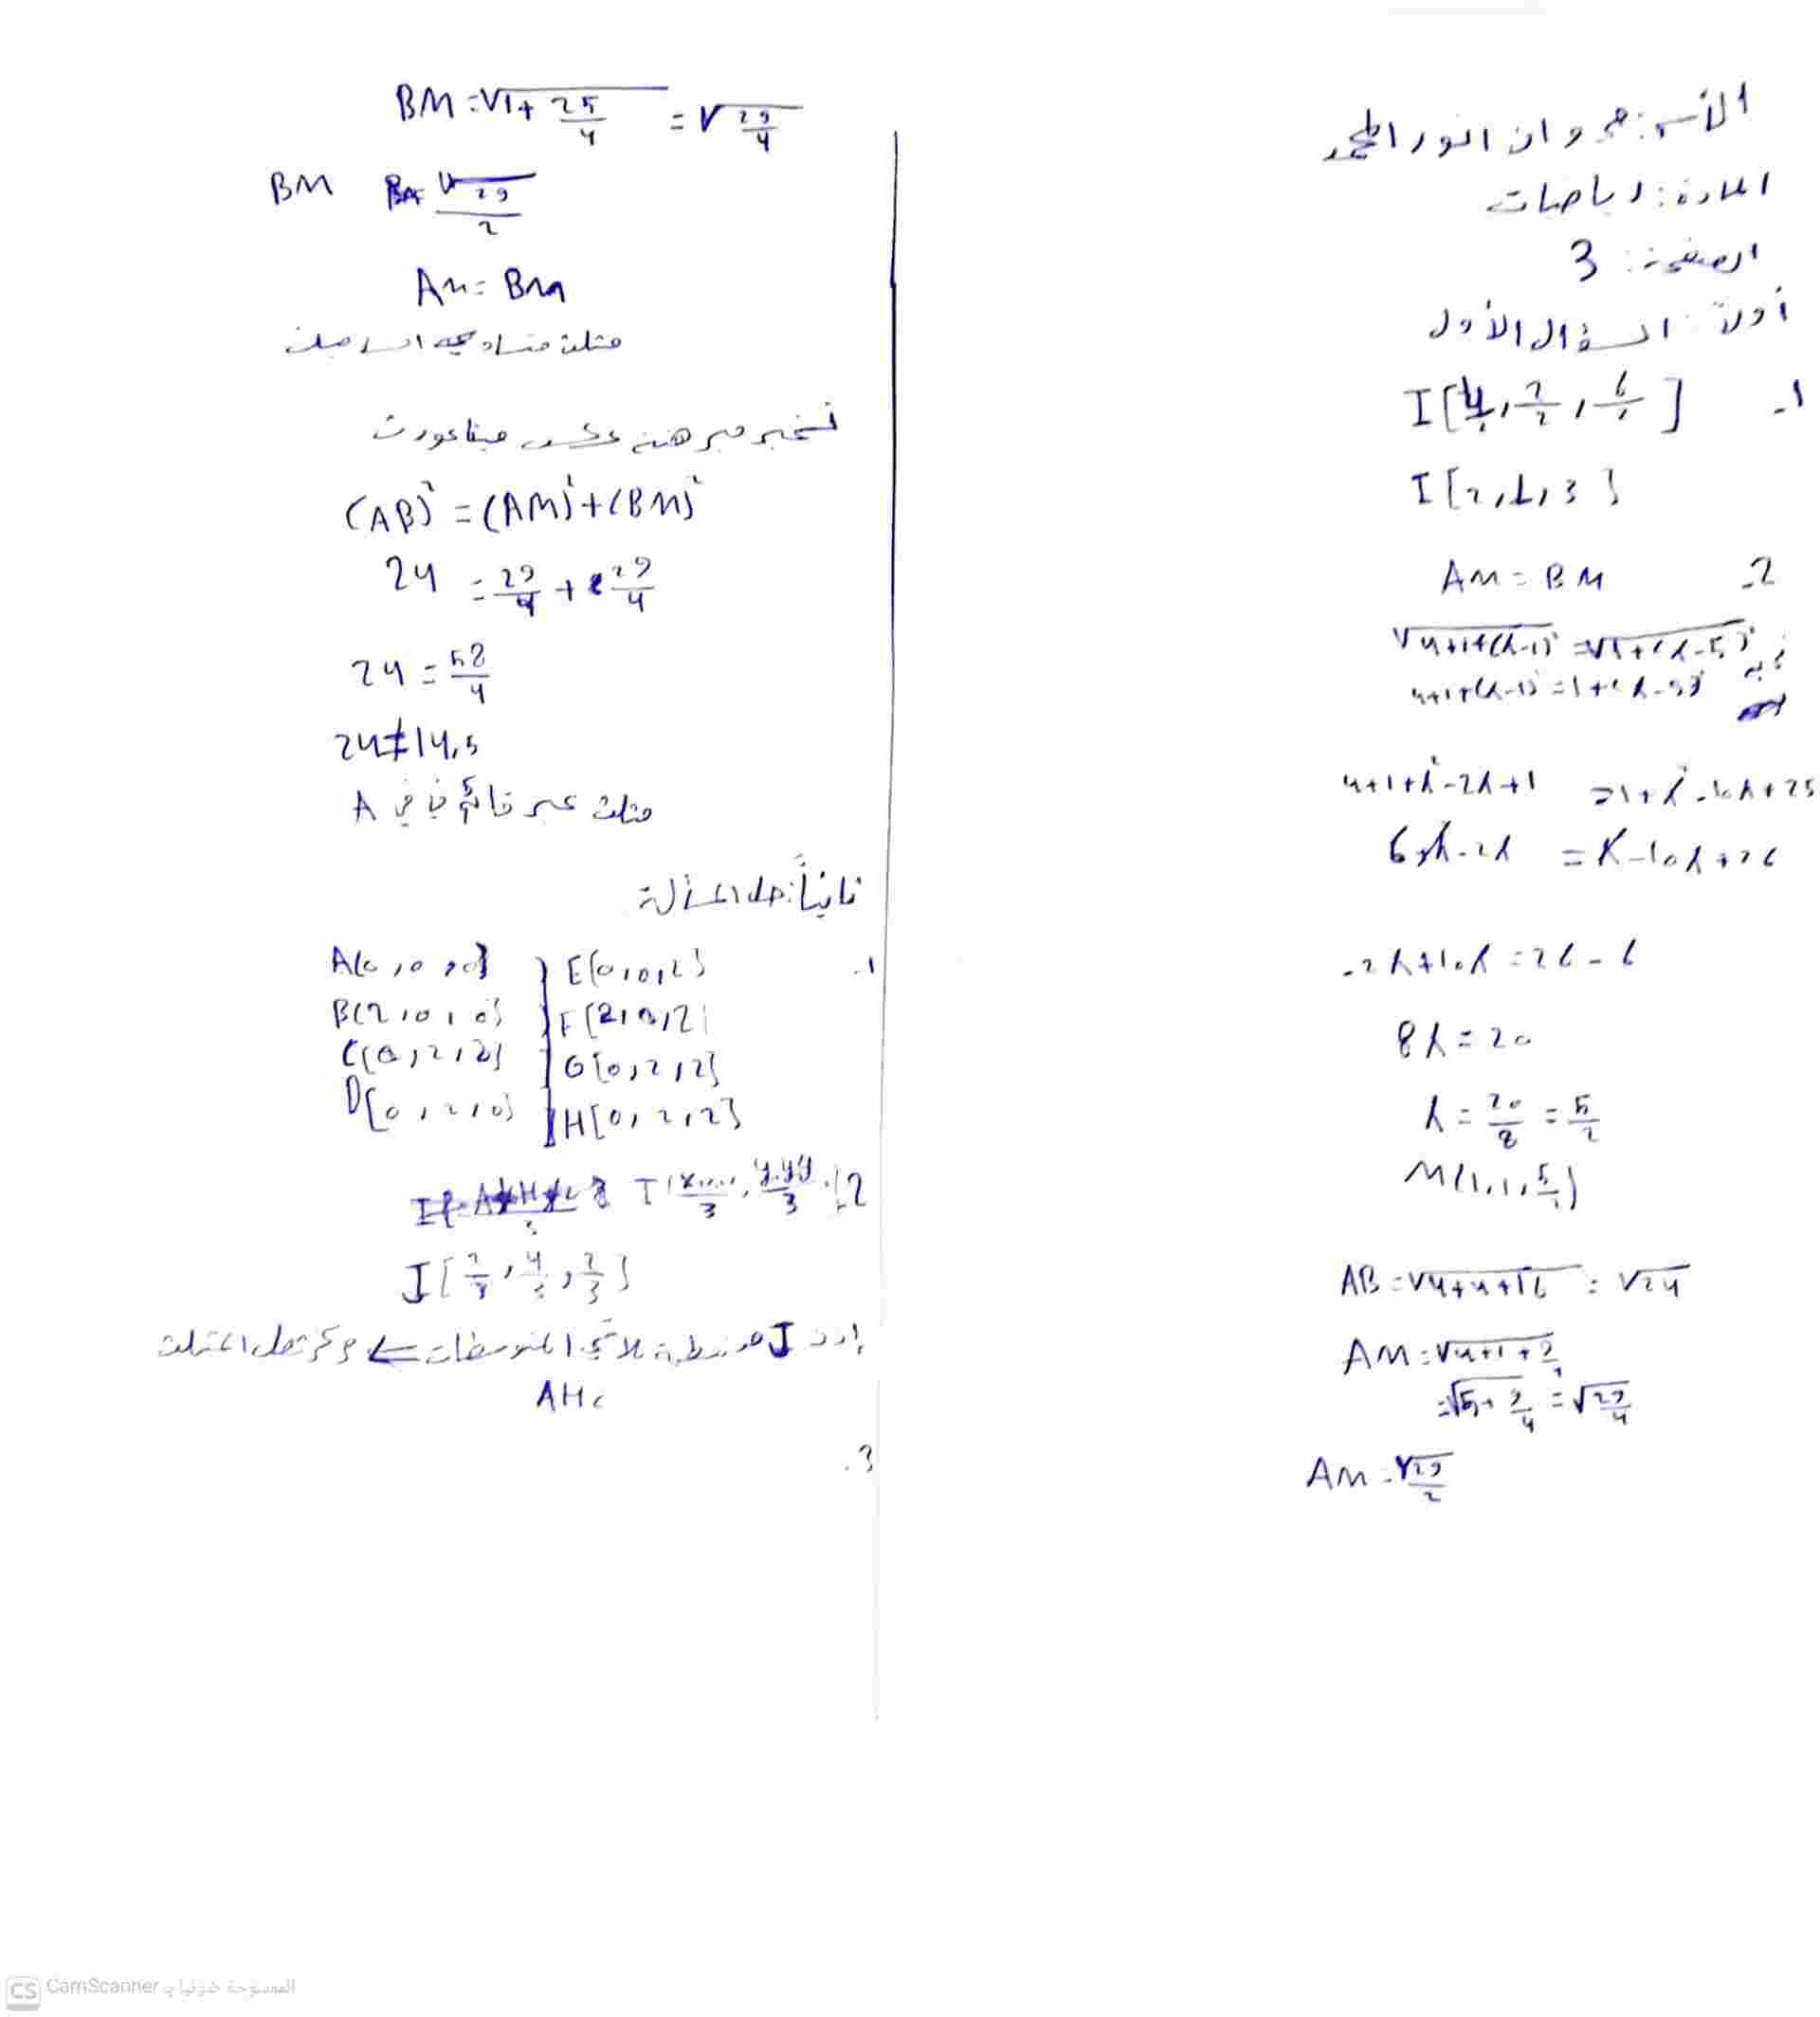 الأسم: مروان انور المحمد
المادة: رياضيات
الصفحة: 3
أولاً: السؤال الأول
1- I[4/2, 2/2, 6/2]
I[2,1,3]
2- AM = BM
√4+1+(λ-1)² = √1+(λ-5)²
4+1+(λ-1)² = 1+(λ-5)²
4+1+λ²-2λ+1 = 1+λ²-10λ+25
6+λ²-2λ = λ²-10λ+26
-2λ+10λ = 26-6
8λ = 20
λ = 20/8 = 5/2
M(1,1,5/2)
AB = √4+4+16 = √24
AM = √4+1+9/4
= √5+9/4 = √29/4
AM = √29/2
BM = √1+25/4 = √29/4
BM √29/2
AM = BM
مثلث متساوي الساقين
نختبر مبرهنة عكس فيثاغورث
(AB)² = (AM)²+(BM)²
24 = 29/4 + 29/4
24 = 58/4
24≠14,5
مثلث غير قائم في A
ثانياً: حل المسألة
1- A(0,0,0) E(0,0,2)
B(2,0,0) F(2,0,2)
C(0,2,2) G(0,2,2)
D(0,2,0) H(0,2,2)
2-
J[2/3, 4/3, 2/3]
إذن J هو نقطة تلاقي المتوسطات ⇐ مركز ثقل المثلث
AHC
3.
الممسوحة ضوئيا بـ CamScanner
CS